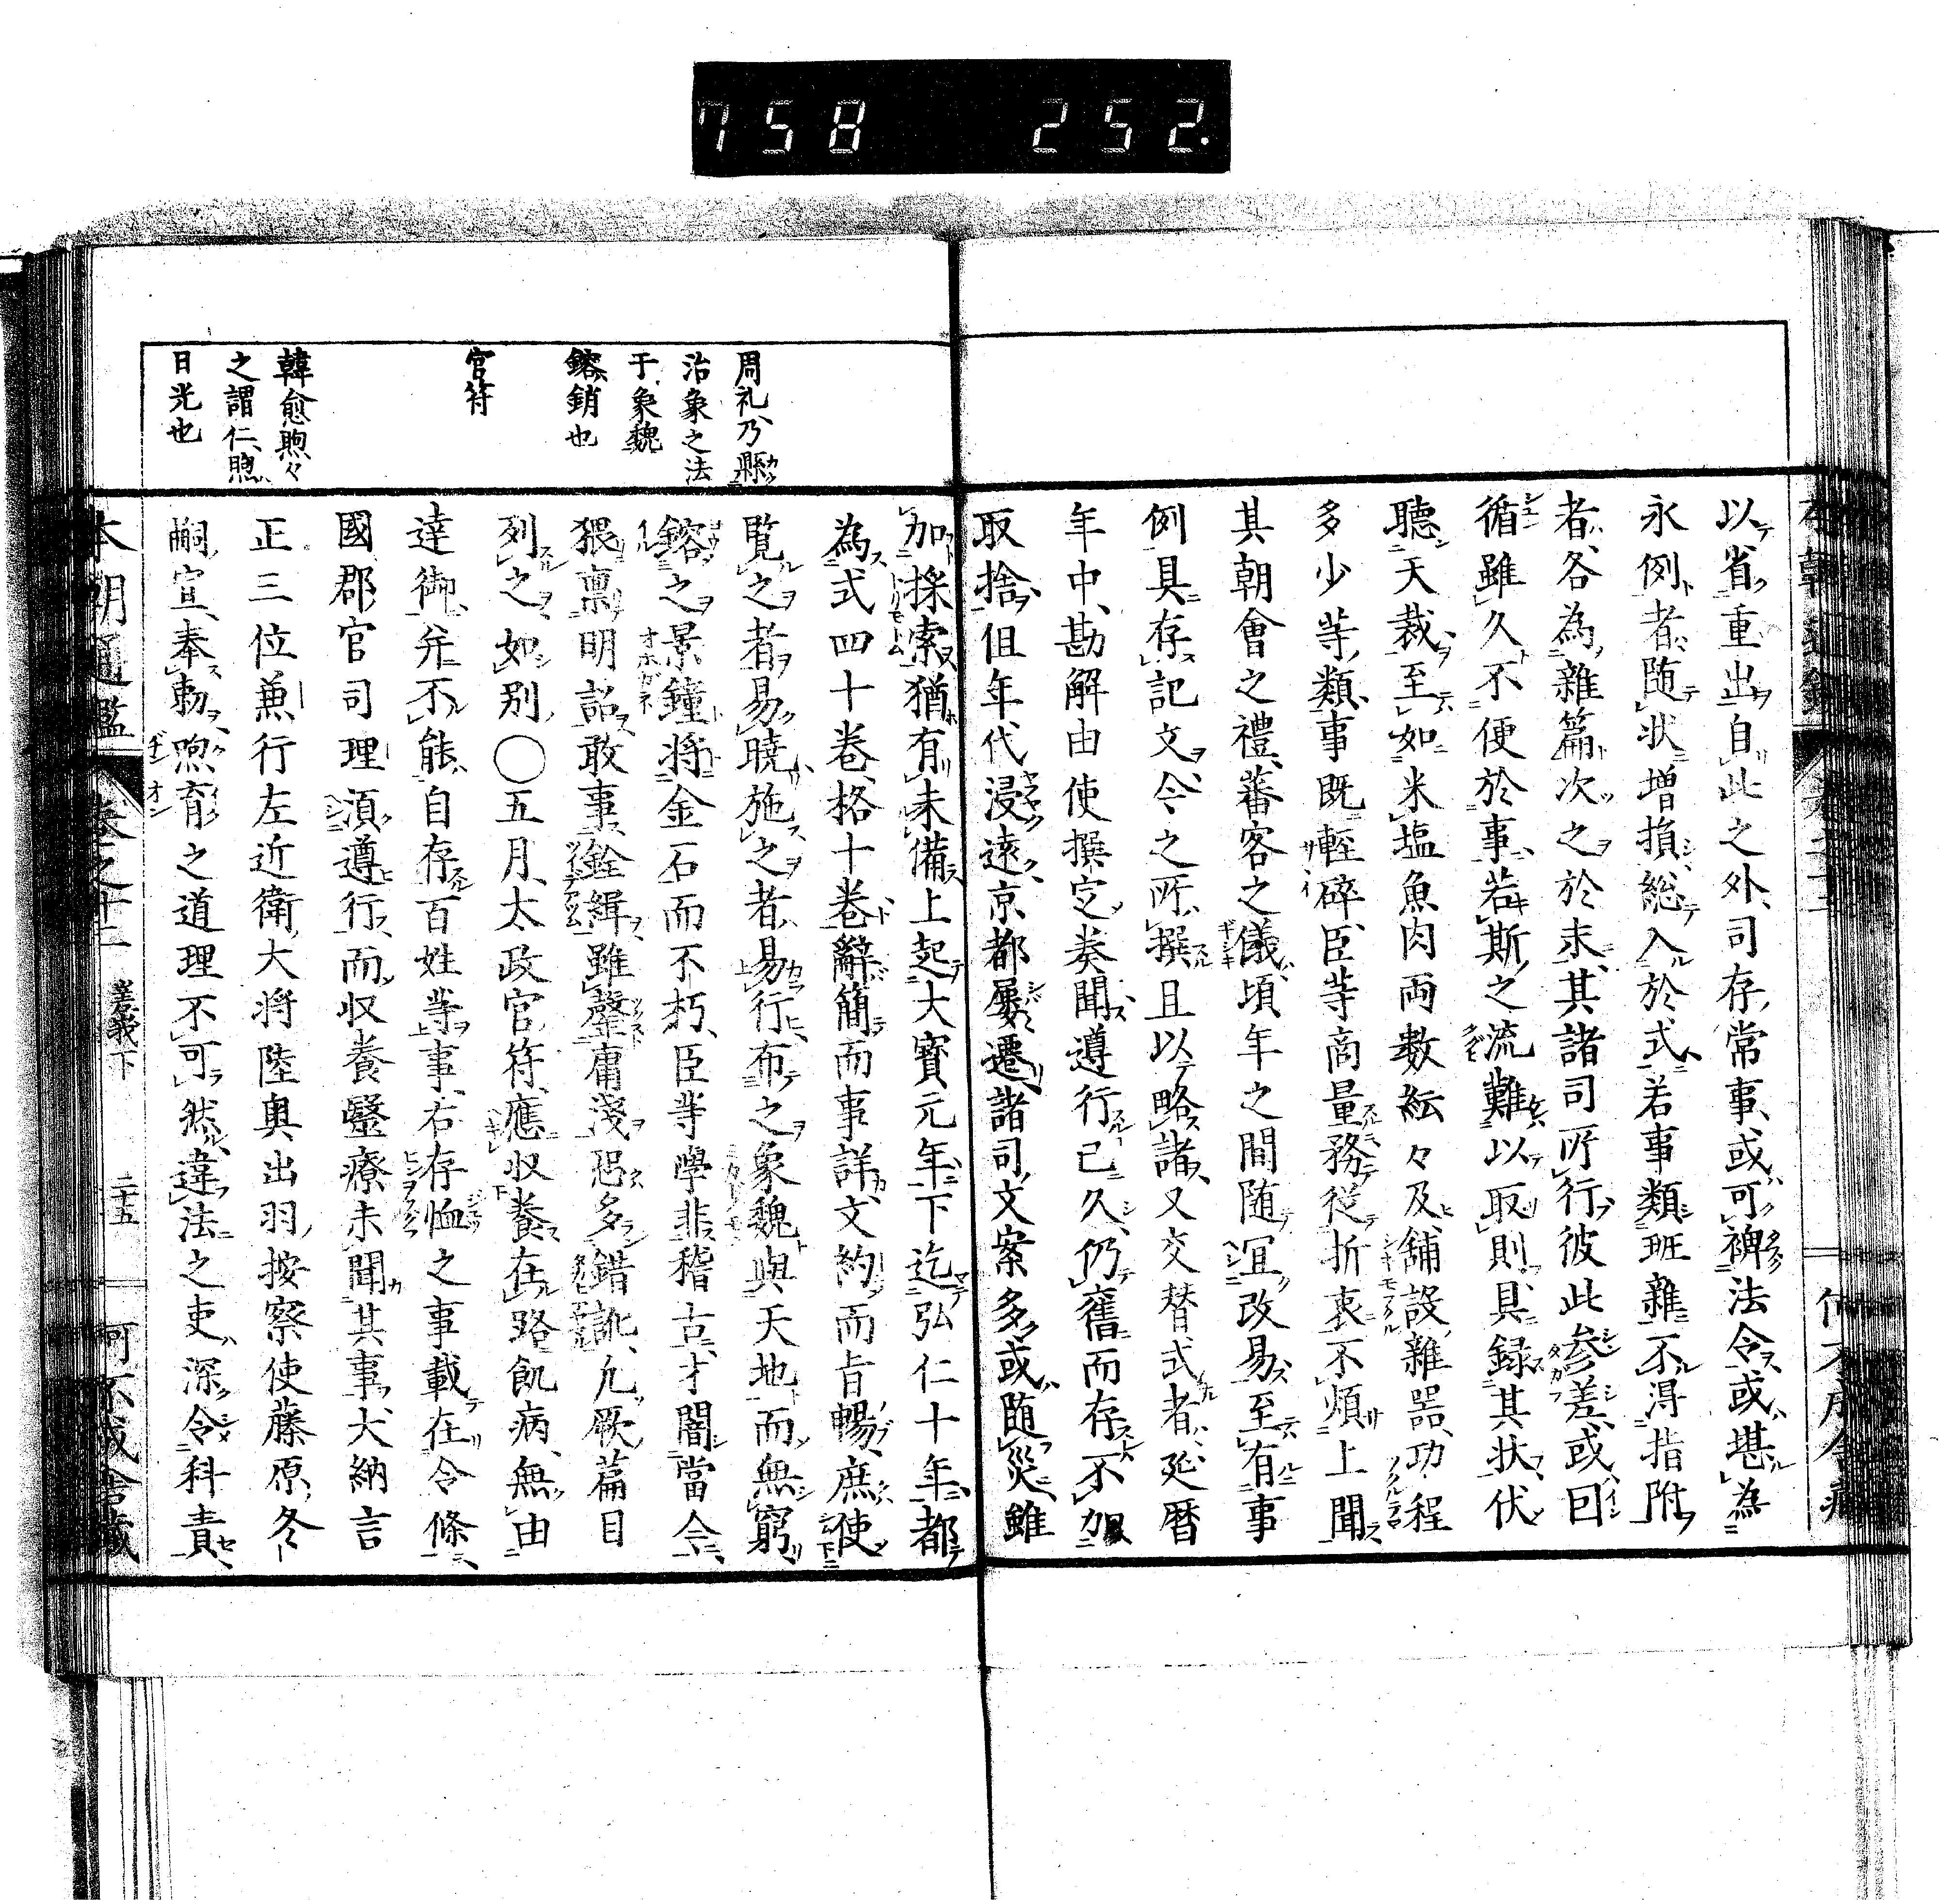 758 252.
以省重出自此之外司存常事或可裨法令或堪為
永例者随状増損総入於式若事類班雜不得指附
者各為雜篇次之於末其諸司所行彼此参差或因
循雖久不便於事若斯之流難以取則具録其状伏
聽天裁至如米塩魚肉両數紜々及舗設雜噐功程
多少等類事既軽碎臣等商量務従折衷不煩上聞
其朝會之禮蕃客之儀頃年之間随宜改易至有事
例具存記文今之所撰且以略諸又交替式者延暦
年中勘解由使撰定奏聞遵行已久仍舊而存不加
取捨但年代浸遠京都屢遷諸司文案多或随災雖
加採索猶有未備上起大寳元年下迄弘仁十年都
為式四十巻格十巻辭簡而事詳文約而旨暢庶使
覧之者易曉施之者易行布之象魏與天地而無窮
鎔之景鐘将金石而不朽臣等學非稽古才闇當今
猥禀明詔敢事銓緝雖罄庸淺恐多錯訛凢厥篇目
列之如别〇五月太政官符應収養在路飢病無由
達御并不能自存百姓等事右存恤之事載在令條
國郡官司理湏遵行而収養毉療未聞其事大納言
正三位兼行左近衛大将陸奥出羽按察使藤原冬
嗣宣奉勅煦育之道理不可然違法之吏深令科責
周礼乃縣
治象之法
于象魏
鎔銷也
官符
韓愈煦々
之謂仁煦
日光也
本朝通鑑 巻之十二 嵯峨下 二十五